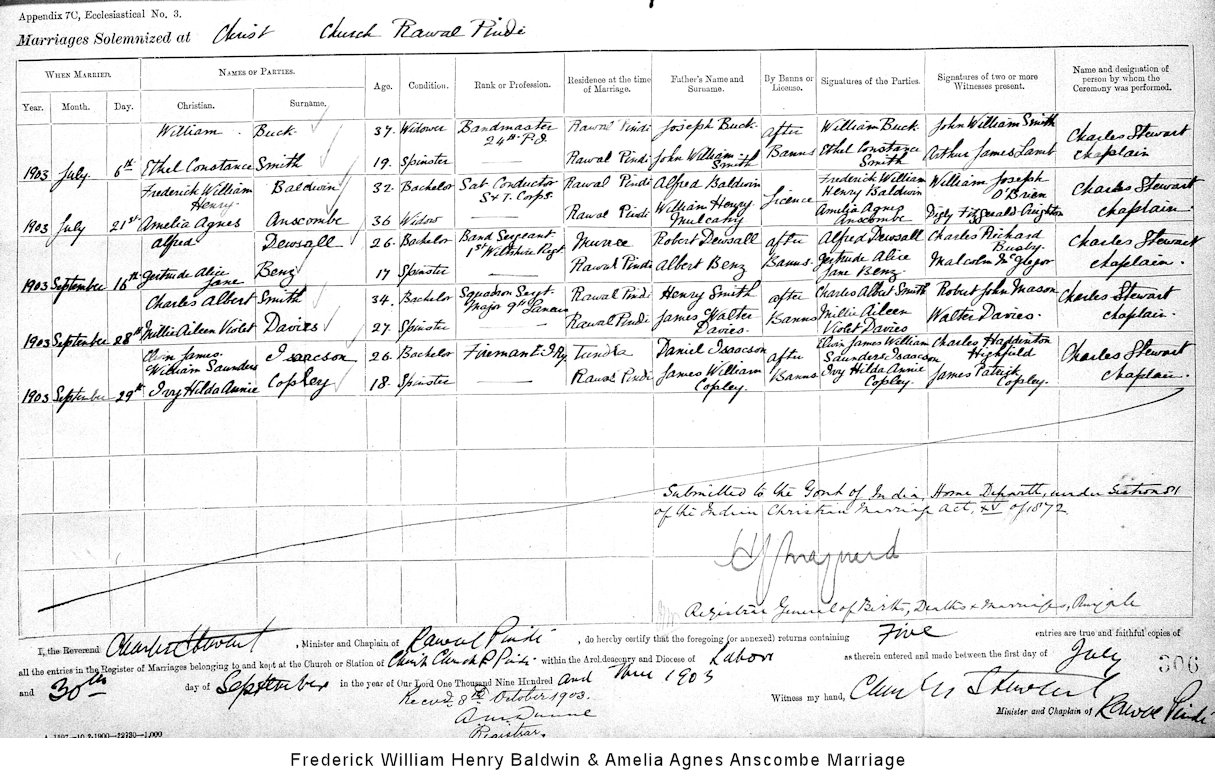 Appendix 7C, Ecclesiastical No. 3.
Marriages Solemnized at Christ Church Rawal Pindi
When Married. Names of Parties. Age. Condition. Rank or Profession. Residence at the time of Marriage. Father's Name and Surname. By Banns or License. Signatures of the Parties. Signatures of two or more Witnesses present. Name and designation of person by whom the Ceremony was performed.
Year. Month. Day. Christian. Surname.
William Buck 37. Widower Bandmaster 24th P.I. Rawal Pindi Joseph Buck after Banns William Buck John William Smith Charles Stewart chaplain
1903 July 6th Ethel Constance Smith 19. Spinster Rawal Pindi John William Smith Ethel Constance Smith Arthur James Lamb
Frederick William Henry Baldwin 32. Bachelor Sub Conductor S & T. Corps. Rawal Pindi Alfred Baldwin Licence Frederick William Henry Baldwin William Joseph O'Brien Charles Stewart chaplain.
1903 July 21st Amelia Agnes Anscombe 36 Widow Rawal Pindi William Henry Mulcahy Amelia Agnes Anscombe
alfred Dewsall 26. Bachelor Band Sergeant 1st Wiltshire Regt. Murree Robert Dewsall after Banns. Alfred Dewsall Charles Richard Busby. Charles Stewart chaplain.
1903 September 16th Gertrude Alice Jane Benz 17 Spinster Rawal Pindi Albert Benz Gertrude Alice Jane Benz Malcolm McGregor
Charles Albert Smith 34. Bachelor Squadron Sergt Major 9th Lancers Rawal Pindi Henry Smith after Banns Charles Albert Smith Robert John Mason Charles Stewart chaplain.
1903 September 28th Millie Aileen Violet Davies 27. Spinster Rawal Pindi James Walter Davies. Millie Aileen Violet Davies Walter Davies.
James William Saunders Isaacson 26. Bachelor Fireman Tundla Daniel Isaacson after Banns James William Saunders Isaacson Charles Haddinton Highfield Charles Stewart chaplain.
1903 September 29th Ivy Hilda Annie Copley 18. Spinster Rawal Pindi James William Copley. Ivy Hilda Annie Copley. James Patrick Copley.
Submitted to the Govt of India, Home Departt, under Section 81
of the Indian Christian Marriage Act, XV of 1872
Registrar General of Births, Deaths & Marriages, Punjab
I, the Reverend Charles Stewart, Minister and Chaplain of Rawal Pindi, do hereby certify that the foregoing (or annexed) returns containing Five entries are true and faithful copies of
all the entries in the Register of Marriages belonging to and kept at the Church or Station of Christ Church R Pindi within the Archdeaconry and Diocese of Lahore as therein entered and made between the first day of July
and 30th day of September in the year of our Lord One Thousand Nine Hundred and Three 1903
306
Recvd. 8th October 1903.
Registrar.
Witness my hand, Charles Stewart
Minister and Chaplain of Rawal Pindi
Frederick William Henry Baldwin & Amelia Agnes Anscombe Marriage